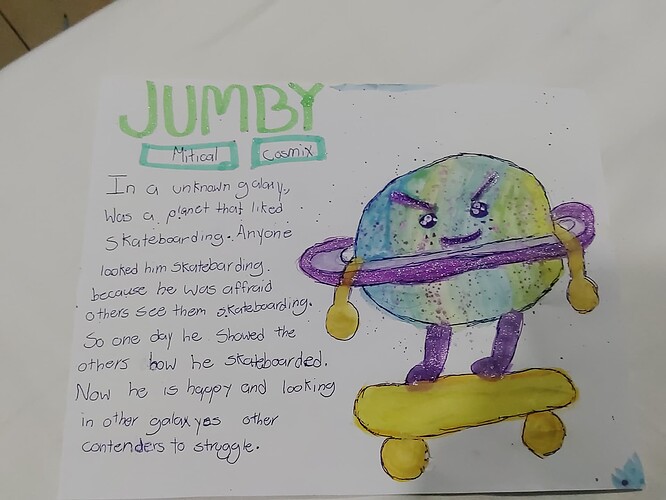 JUMBY
Mitical Cosmix
In a unknown galaxy,
Was a planet that liked
Skateboarding. Anyone
looked him skatebarding.
because he was affraid
others see them skateboarding.
So one day he showed the
others how he skateboarded.
Now he is happy and looking
in other galaxyes other
contenders to struggle.